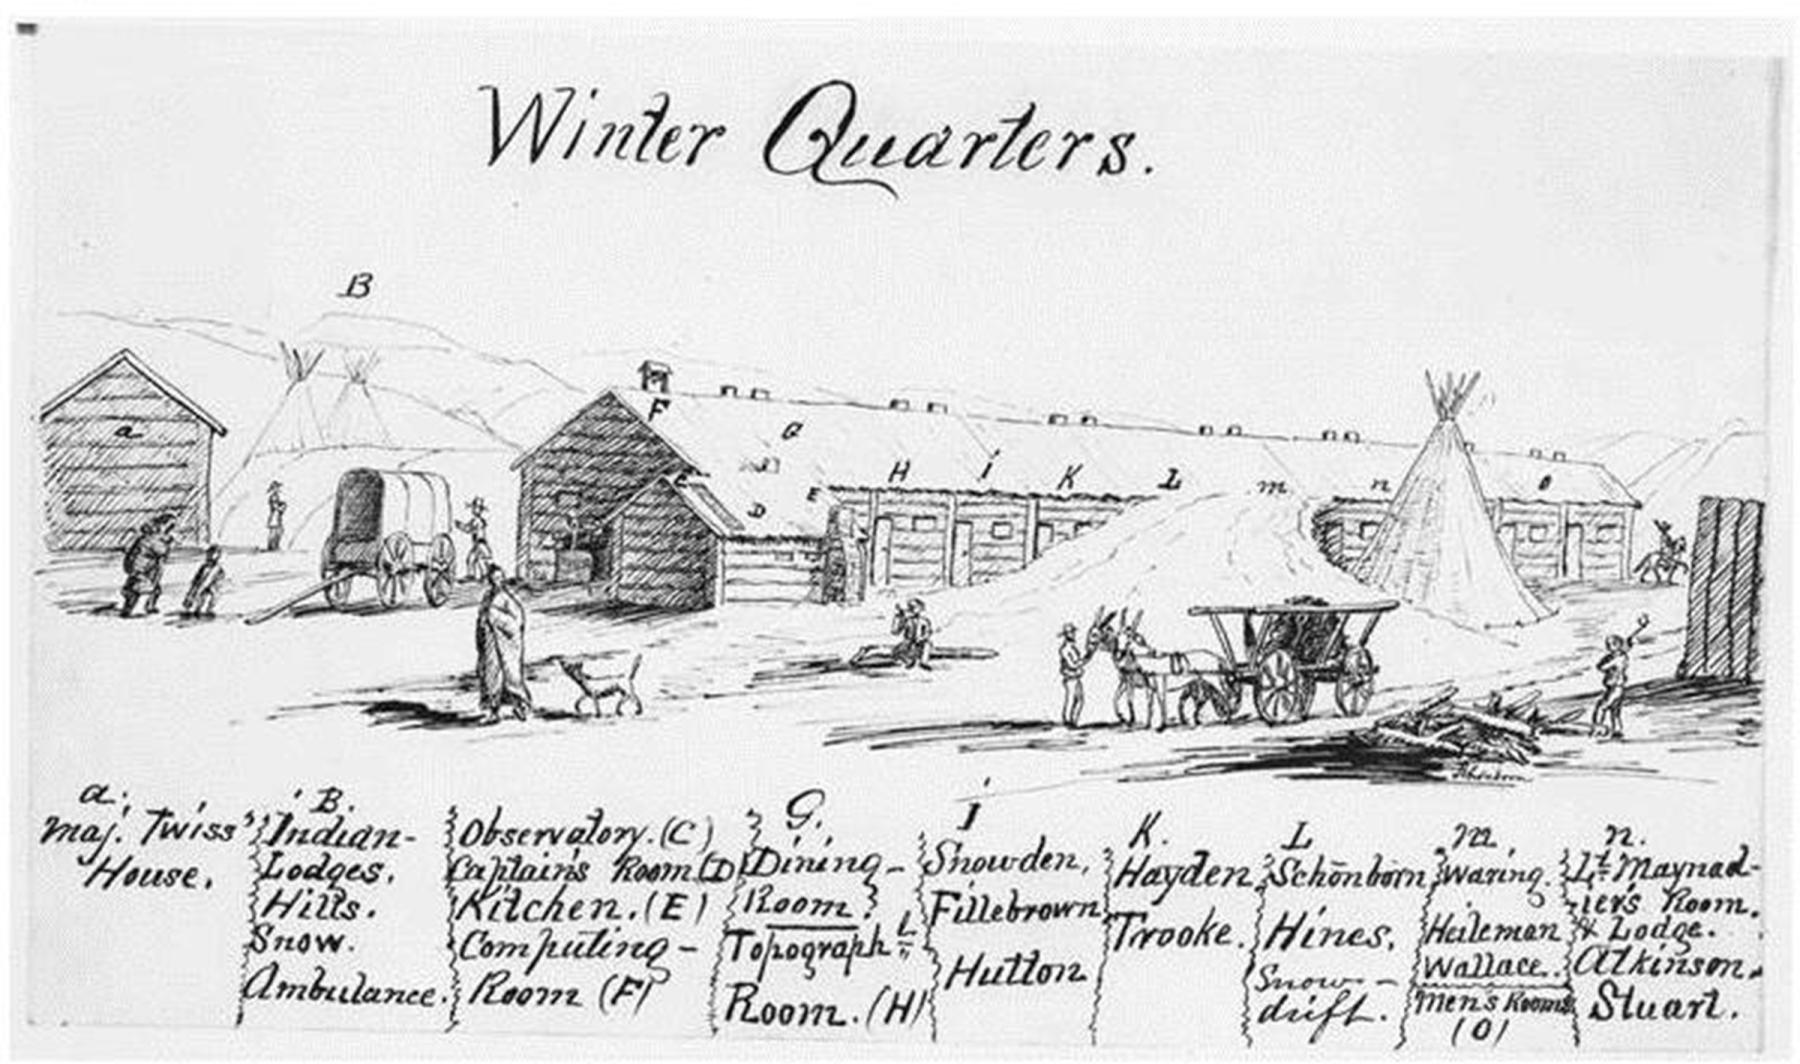 Winter Quarters.
B
a
F
G
C
D
E
H
i
K
L
m
n
O
a.
Maj. Twiss'
House.
B.
Indian-
Lodges.
Hills.
Snow.
Ambulance.
Observatory. (C)
Captain's Room (D)
Kitchen. (E)
Computing-
Room (F)
G.
Dining-
Room.
Topograph'l
Room. (H)
i
Snowden,
Fillebrown,
Hutton
K.
Hayden
Trooke.
L
Schönborn
Hines.
Snow-
drift.
m.
Waring.
Heileman
Wallace.
Men's Rooms
(O)
n.
Lt. Maynad-
iers Room.
& Lodge.
Atkinson.
Stuart.